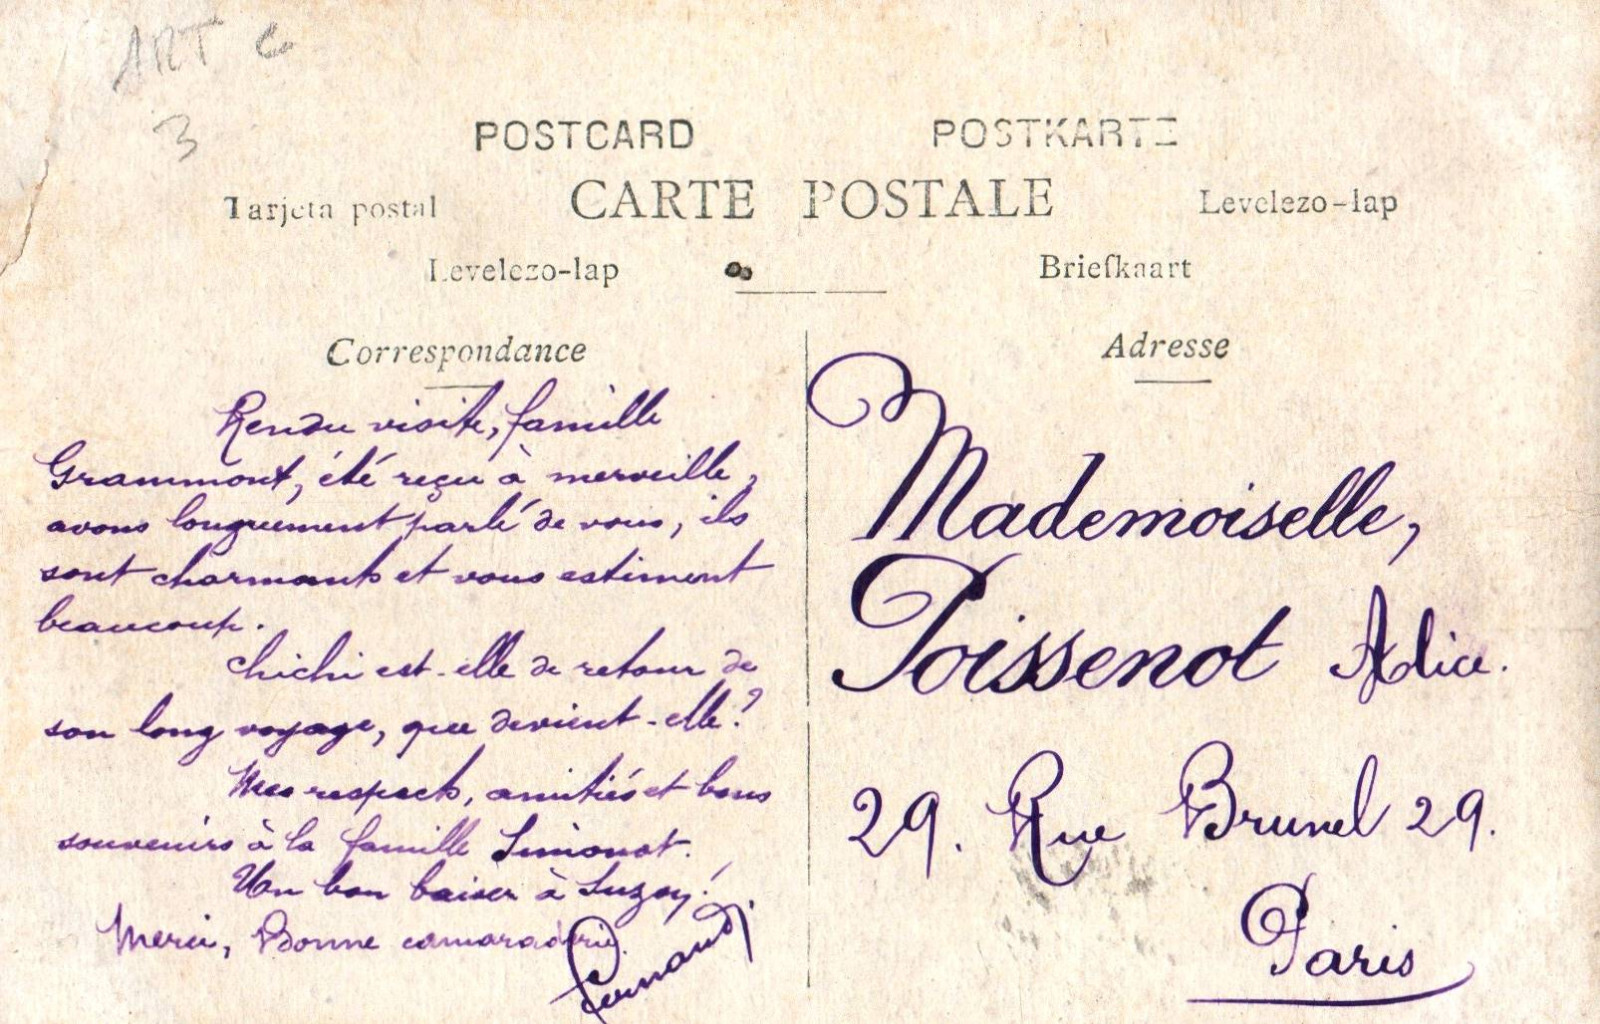 ART C
3
POSTCARD POSTKARTE
Tarjeta postal CARTE POSTALE Levelezo-lap
Levelezo-lap Briefkaart
Correspondance
Rendu visite, famille
Grammont, été reçu à merveille,
avons longuement parlé de vous, ils
sont charmants et vous estiment
beaucoup.
Chichi est-elle de retour de
son long voyage, que devient-elle?
Mes respects, amitiés et bons
souvenirs à la famille Simonot.
Un bon baiser à Suzy!
Merci, Bonne camaraderie.
Fernand
Adresse
Mademoiselle,
Poissenot Alice.
29. Rue Brunel 29.
Paris